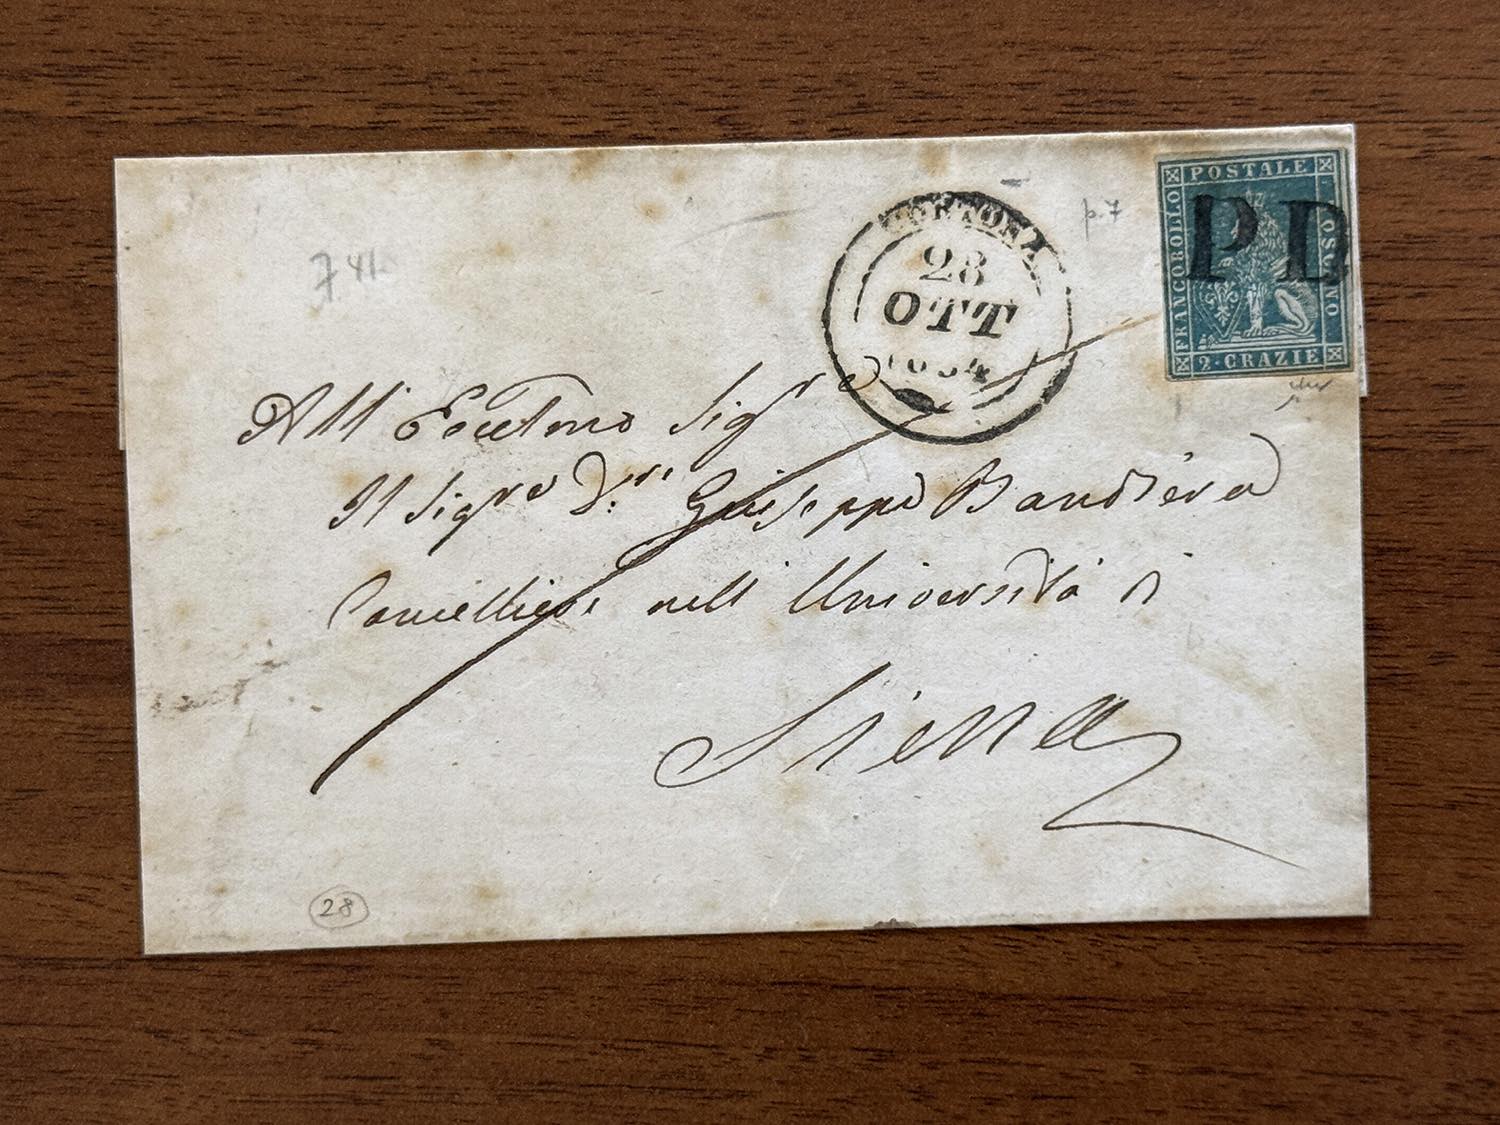 POSTALE
FRANCOBOLLO
TOSCANO
2·GRAZIE
PD
CORTONA
28
OTT
1854
p.7
741
All' Eccellmo Sigre
Il Sigre Giuseppe Bandiera
Cancelliere nell' Università di
Siena
28